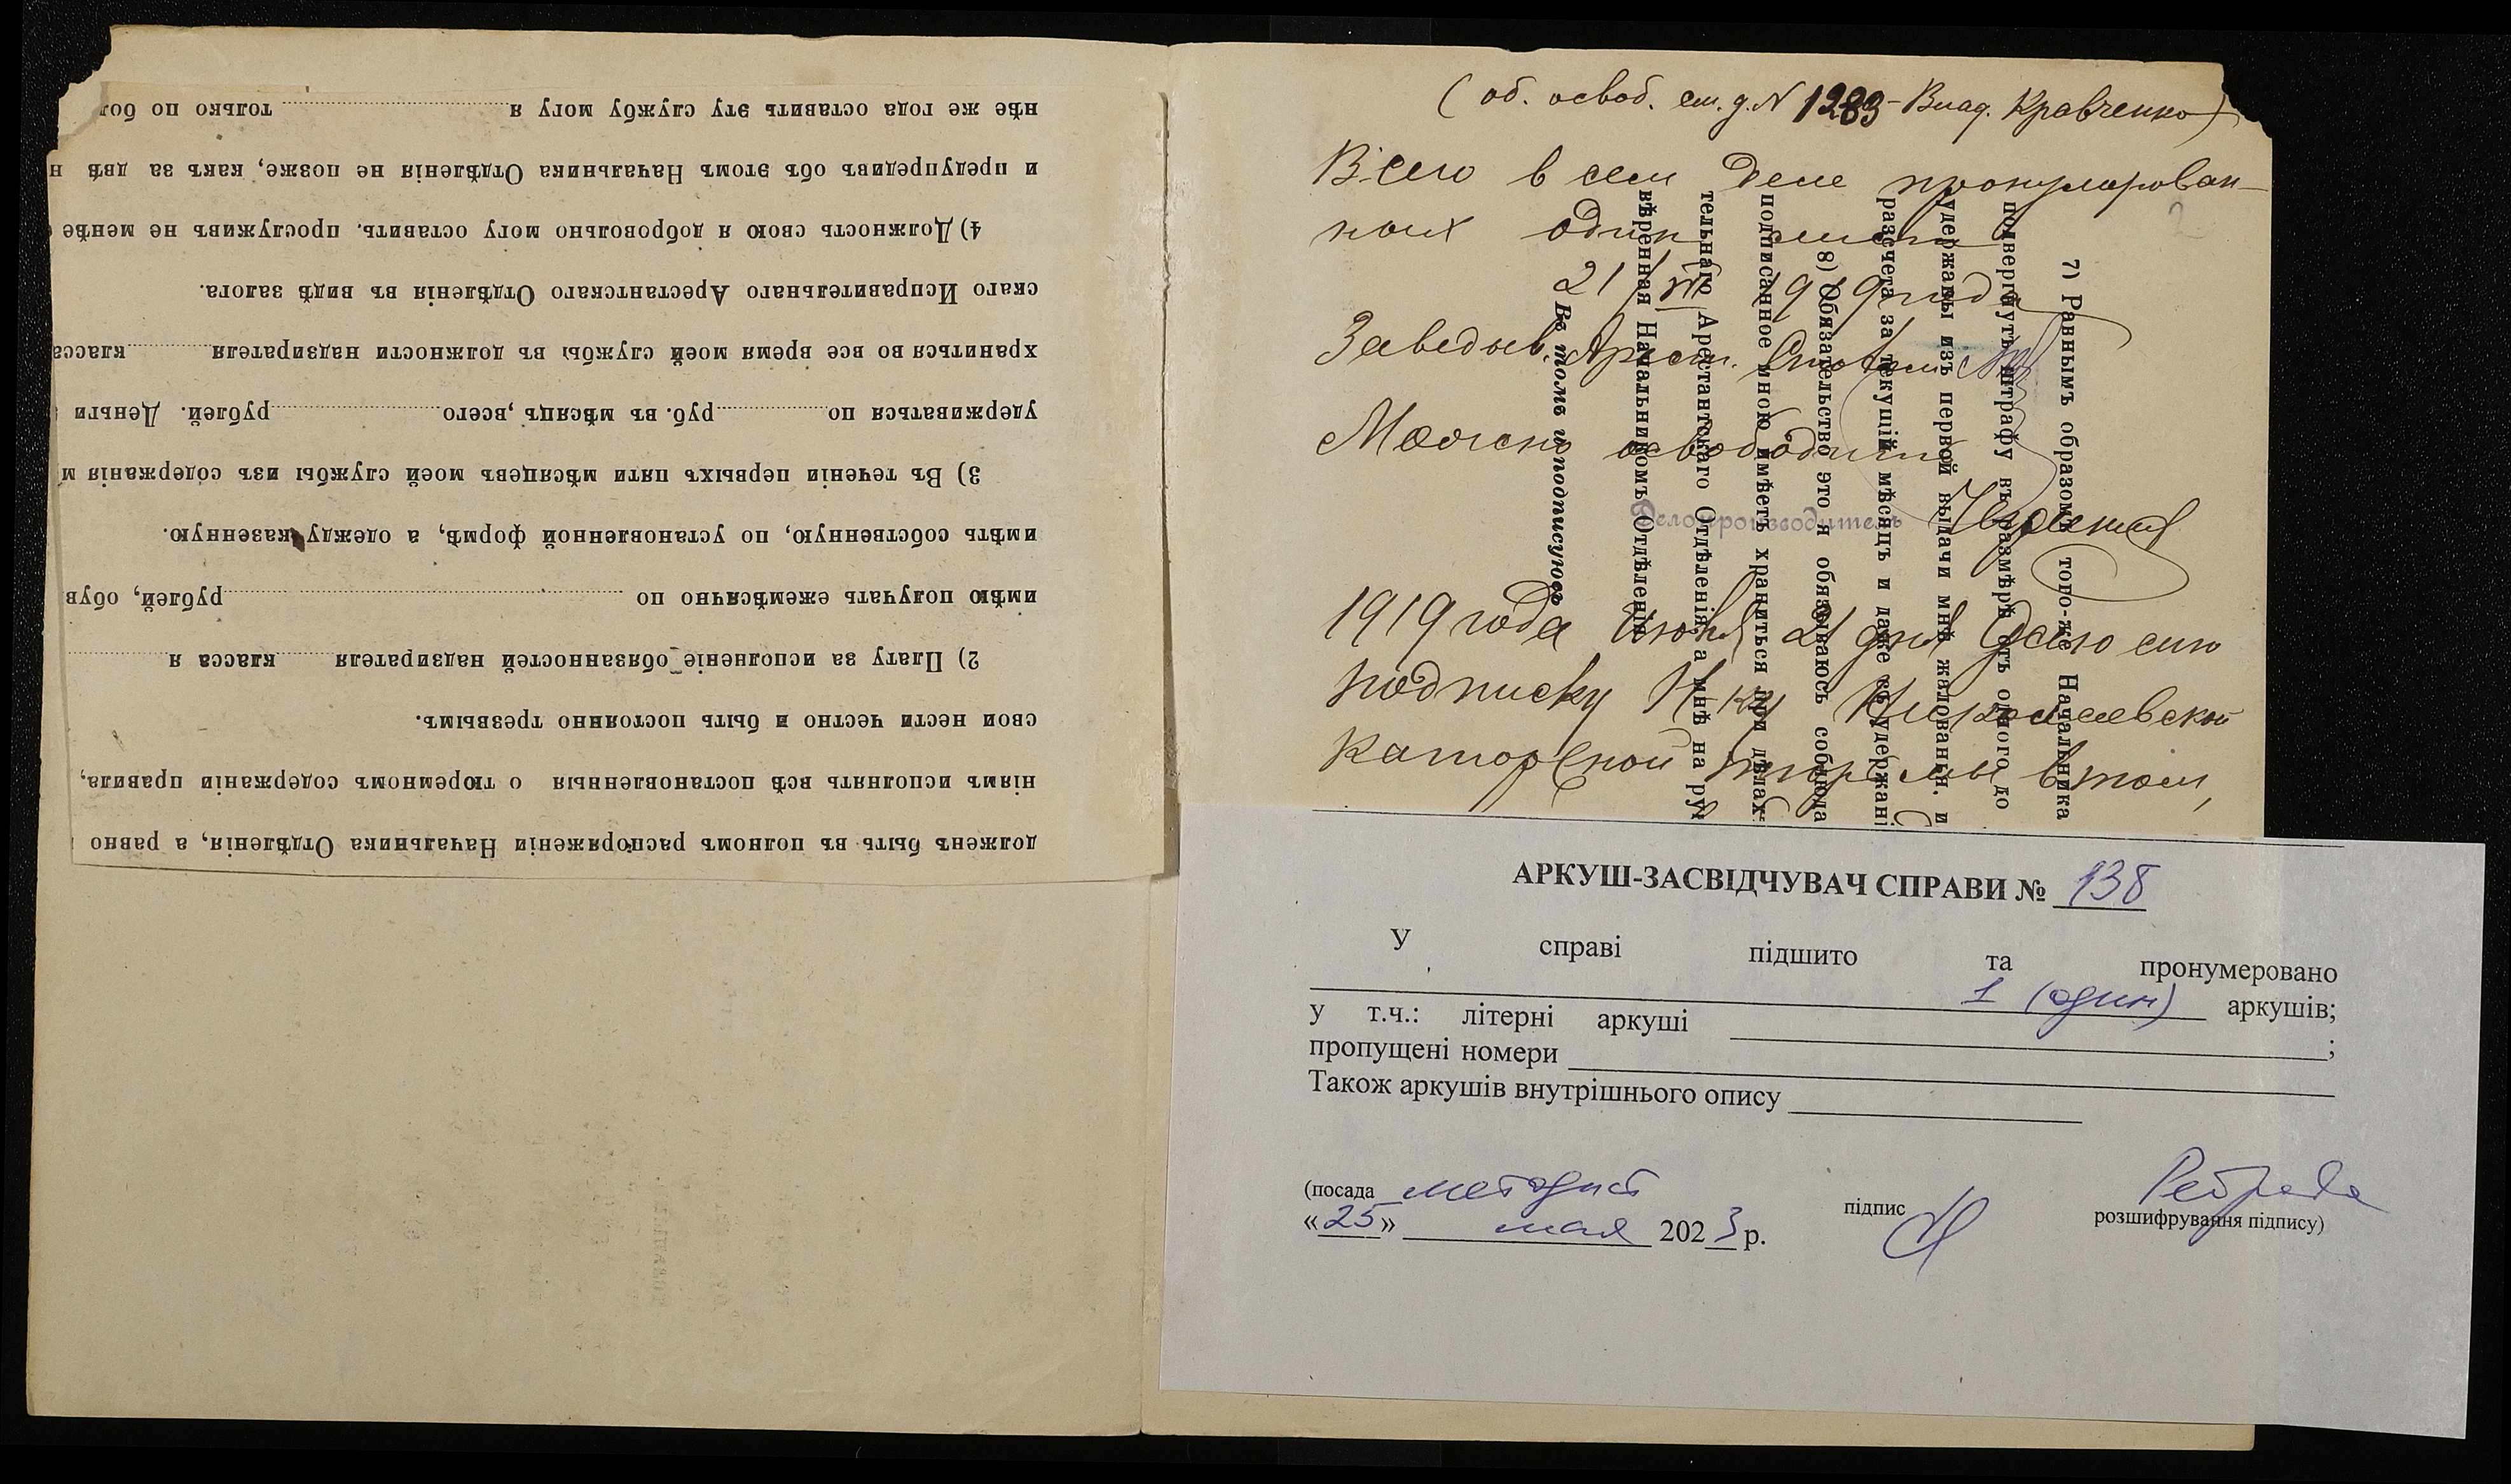 должень быть въ полномъ распоряженіи Начальника Отдѣленія, а равно
ніямъ исполнять всѣ постановленныя о тюремномъ содержаніи правила,
свои нести честно и быть постоянно трезвымъ.
2) Плату за исполненіе обязанностей надзирателя класса я
имѣю получать ежемѣсячно по рублей, обув
имѣть собственную, по установленной формѣ, а одежду казенную.
3) Въ теченіи первыхъ пяти мѣсяцевъ моей службы изъ содержанія м
удерживаться по руб. въ мѣсяцъ, всего рублей. Деньги
храниться во все время моей службы въ должности надзирателя класса
скаго Исправительнаго Арестантскаго Отдѣленія въ видѣ залога.
4) Должность свою я добровольно могу оставить, прослуживъ не менѣе
и предупредивъ объ этомъ Начальника Отдѣленія не позже, какъ за двѣ н
нѣе же года оставить эту службу могу я только по бол
(об. освоб. см. д. N 1283 - Влад. Кравченко)
Всего в сем деле пронумерован-
ных один лист
21/VII 1919 года
Заведыв. Арест. Столом
Можно освободить
Делопроизводитель
1919 года Июля 21 дня Даю сию
подписку Н-ку Николаевской
каторжной тюрьмы в том,
7) Равнымъ образомъ того-же Начальника
подвергнуть штрафу въ размѣрѣ отъ одного до
удержаны изъ первой выдачи мнѣ жалованья. и
разсчета за текущій мѣсяцъ и даже съ удержані
8) Обязательство это я обязываюсь соблюда
подписанное мною имѣетъ храниться при дѣлахъ
тельнаго Арестантскаго Отдѣленія, а мнѣ на ру
вѣренная Начальникомъ Отдѣленія
Въ томъ и подписуюсь
АРКУШ-ЗАСВІДЧУВАЧ СПРАВИ № 138
У справі підшито та пронумеровано
1 (один) аркушів;
у т.ч.: літерні аркуші
пропущені номери ;
Також аркушів внутрішнього опису
(посада методист підпис розшифрування підпису)
«25» мая 2023 р.